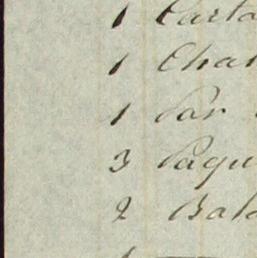 1 Carta
1 Chan
1 Par
3 Paqu
2 Bala
1